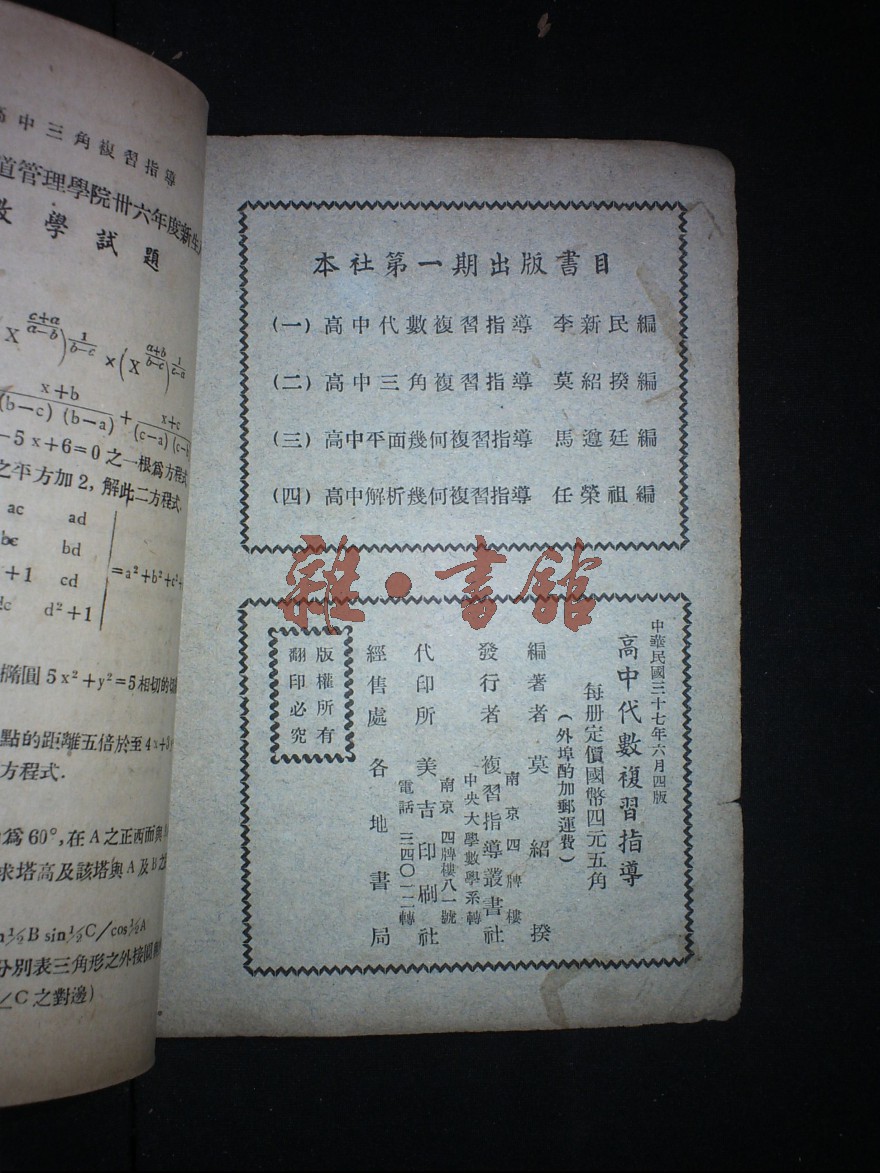 高中三角複習指導
道管理學院卅六年度新生
數學試題
X c+a/a−b)1/b−c ×(X a+b/b−c)1/c−a
x+b/(b−c) (b−a) + x+c/(c−a) (c−
−5x+6=0之一根爲方程式
之平方加2, 解此二方程式.
ac ad
bc bd
+1 cd =a²+b²+c²+
dc d²+1
橢圓5x²+y²=5相切的
點的距離五倍於至4x+3y
方程式.
爲60°,在A之正西而與
求塔高及該塔與A及B之
½B sin½C/cos½A
分別表三角形之外接圓
/C之對邊)
本社第一期出版書目
(一) 高中代數複習指導 李新民編
(二) 高中三角複習指導 莫紹揆編
(三) 高中平面幾何複習指導 馬遵廷編
(四) 高中解析幾何複習指導 任榮祖編
雜·書館
中華民國三十七年六月四版
高中代數複習指導
每册定價國幣四元五角
(外埠酌加郵運費)
編著者 莫紹揆
南京四牌樓
發行者 複習指導叢書社
中央大學數學系轉
南京四牌樓八一號
代印所 美吉印刷社
電話 三四〇一二轉
經售處 各地書局
版權所有
翻印必究